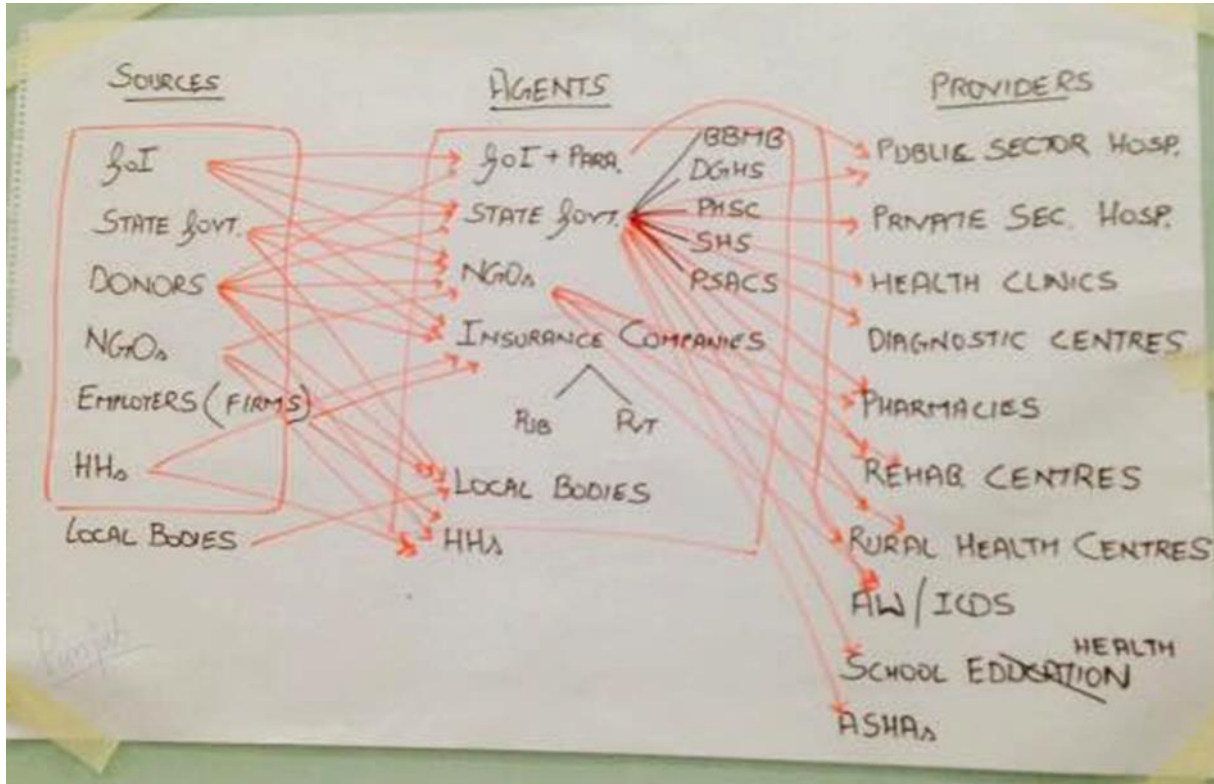 SOURCES
GOI
STATE GOVT.
DONORS
NGOs
EMPLOYERS (FIRMS)
HHs
LOCAL BODIES
Punjab
AGENTS
GOI + PARA.
STATE GOVT.
BBMB
DGHS
PHSC
SHS
PSACS
NGOs
INSURANCE COMPANIES
PUB
PVT
LOCAL BODIES
HHs
PROVIDERS
PUBLIC SECTOR HOSP.
PRIVATE SEC. HOSP.
HEALTH CLINICS
DIAGNOSTIC CENTRES
PHARMACIES
REHAB CENTRES
RURAL HEALTH CENTRES
AW/ICDS
SCHOOL HEALTH
ASHAs